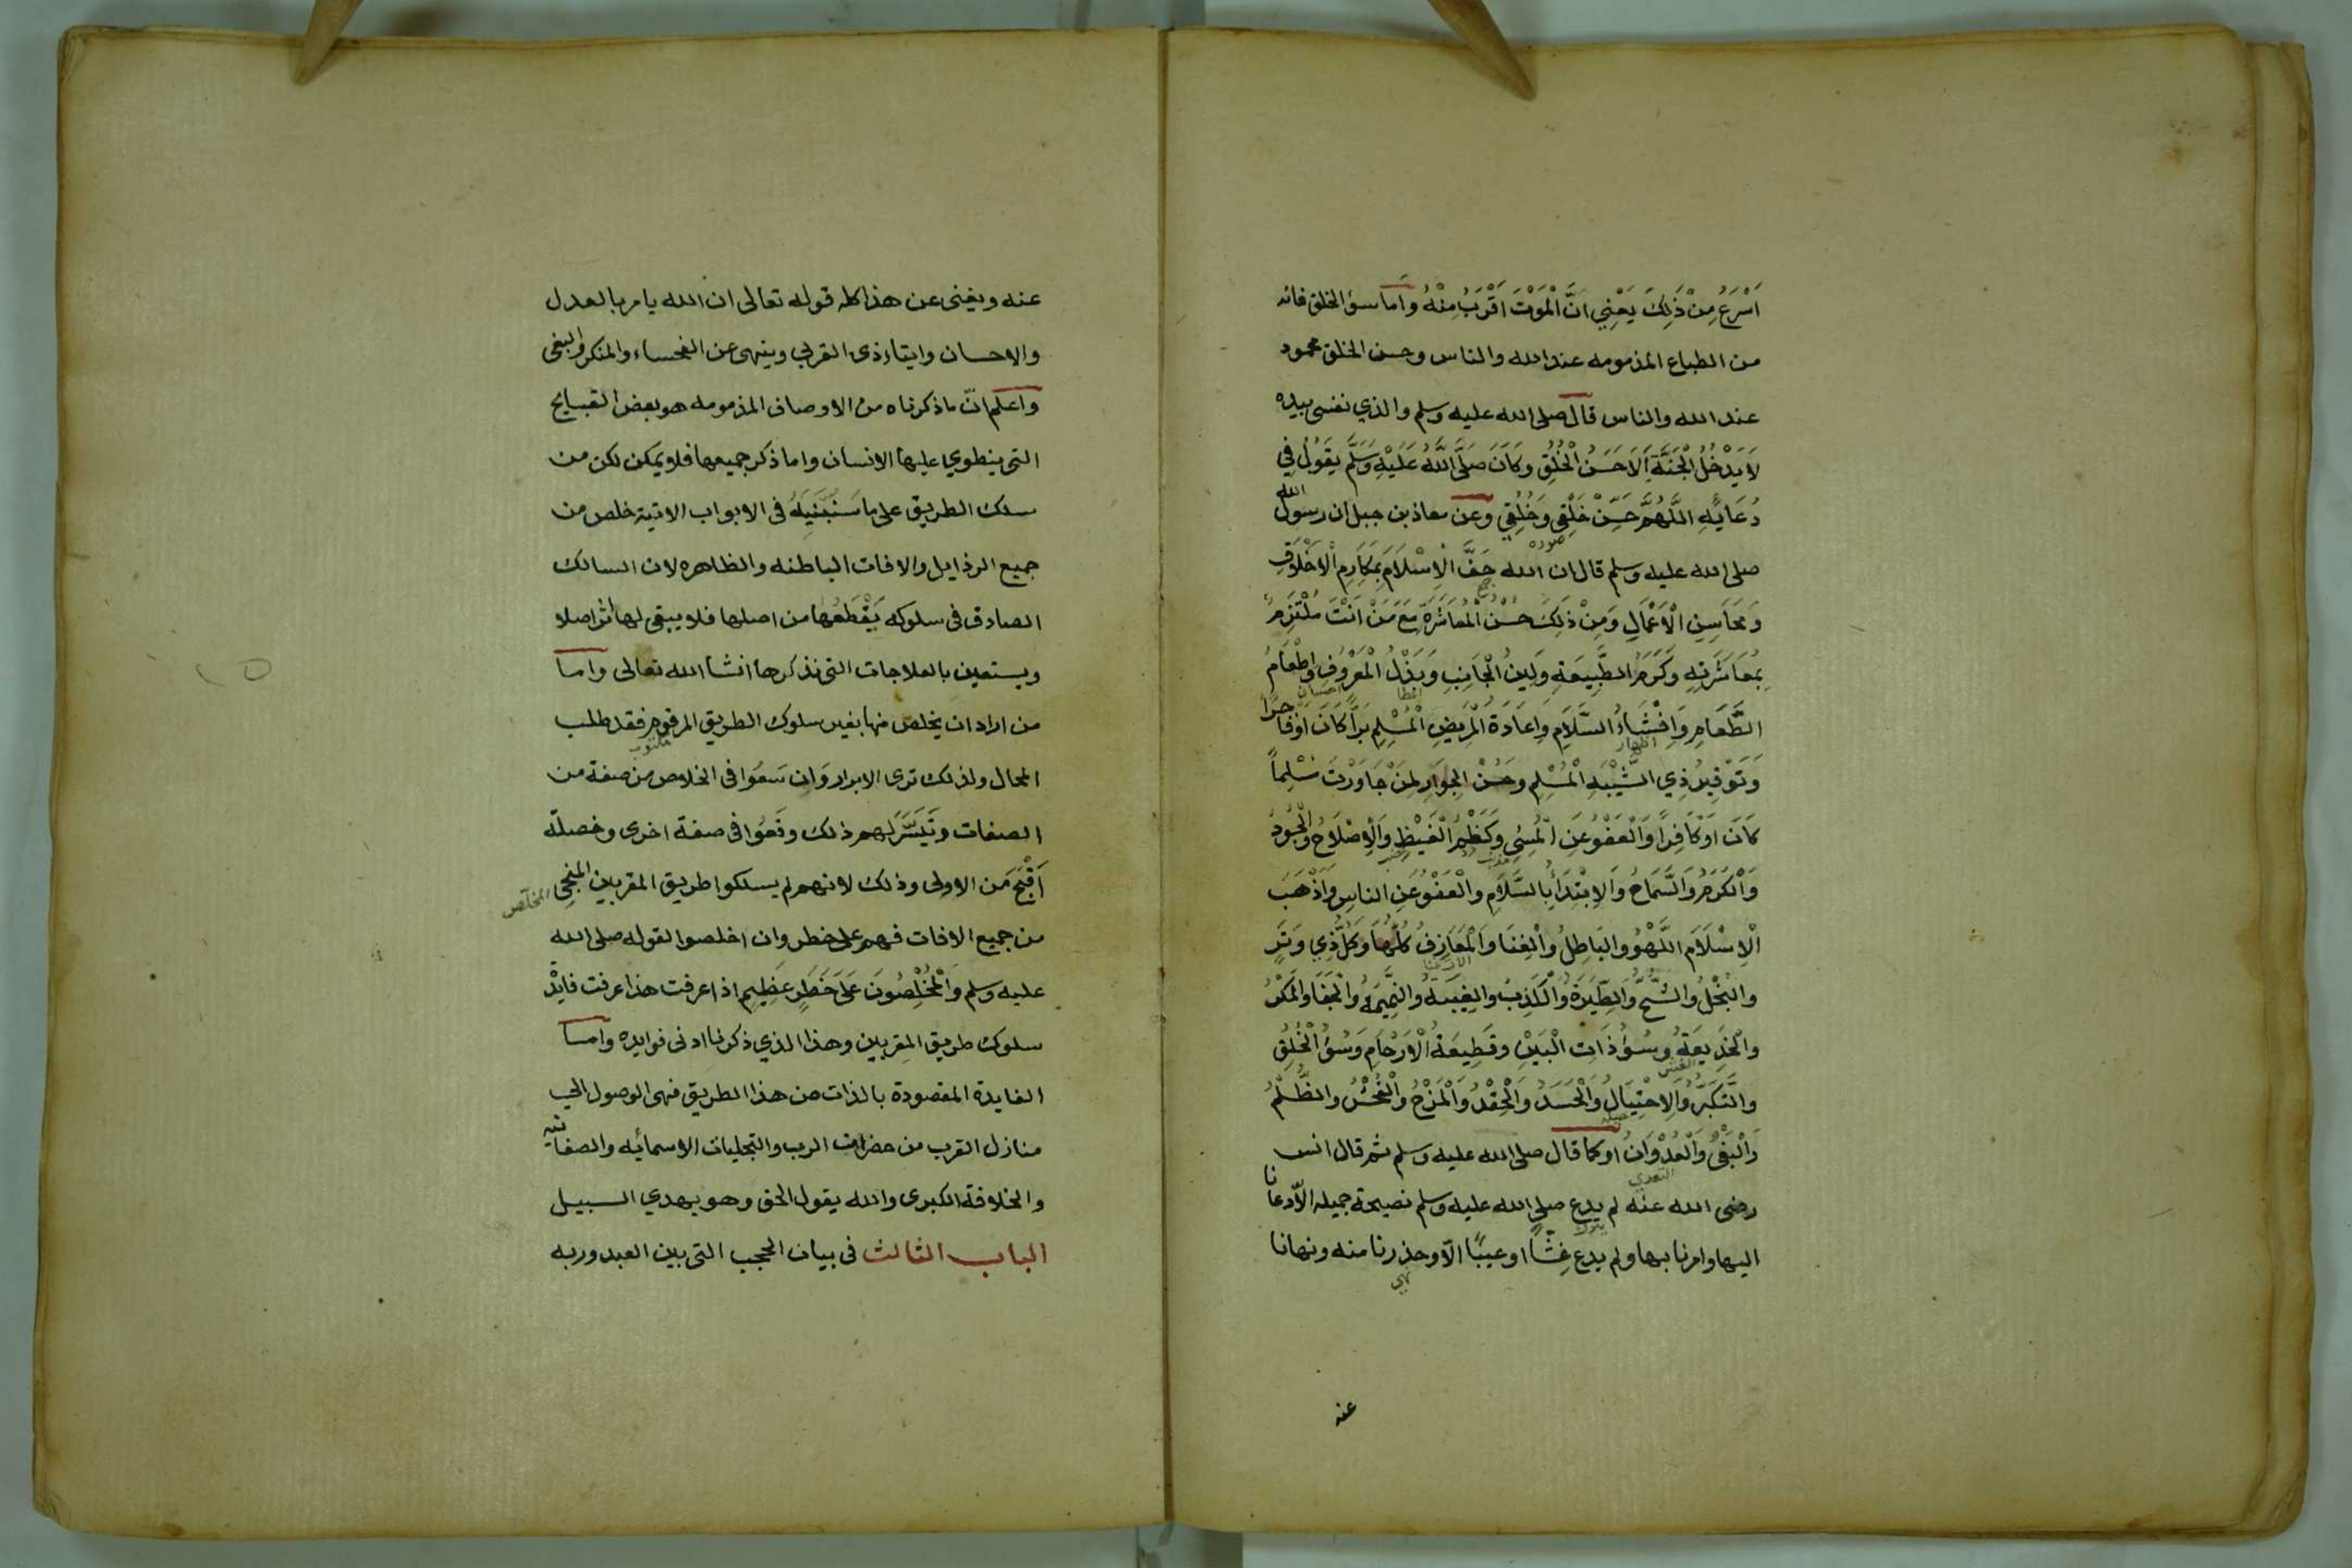 اَسْرَعُ مِنْ ذَلِكَ يَعْنِي اَنَّ الْمَوْتَ اَقْرَبُ مِنْهُ واما سوٌ الخلق فانه
من الطباع المذمومه عند الله والناس وحسن الخلق محمود
عند الله والناس قال صلى الله عليه وسلم والذي نفسى بيده
لاَ يَدْخُلُ الْجَنَّةَ اِلاَ حَسَنُ الْخُلُقِ وكَانَ صَلَّى اللَّهُ عَلَيْهِ وَسَلَّم يَقُولُ فِي
دُعَائِهِ اللَّهُمَّ حَسِّنْ خَلْقِي وَخُلُقِي وعن معاذ بن جبل ان رسول الله
صورة
صلى الله عليه وسلم قال ان الله حَفَّ الْاِسْلاَمَ بِمَكَارِمِ الْاَخْلَاقِ
وَمَحَاسِنِ الْاَعْمَالِ وَمِنْ ذَلِكَ حُسْنُ الْمُعَاشَرَةِ مَعَ مَنْ اَنْتَ مُلْتَزِمٌ
بِمُعَاشَرَتِهِ وَكَرَمُ الطَّبِيعَةِ وَلِينُ الْجَانِبِ وَبَذْلُ الْمَعْرُوفِ وَاِطْعَامُ
الطَّعَامِ وَاِفْشَاءُ السَّلاَمِ وَاِعَادَةُ الْمَرِيضِ الْمُسْلِمِ بَرًّا كَانَ اَوْ فَاجِرًا
اظهار
وَتَوْقِيرُ ذِي الشَّيْبَةِ الْمُسْلِمِ وحُسْنُ الْجِوَارِ لِمَنْ جَاوَرْتَ مُسْلِماً
كَانَ اَوْ كَافِرًا وَالْعَفْوُ عَنِ الْمُسِيِ وَكَظْمُ الْغَيْظِ وَالْاِصْلَاحُ وَالْجُودُ
وَالْكَرَمُ وَالسَّمَاحُ وَالاِبْتِدَاُ بِالسَّلاَمِ والْعَفْوُ عَنِ الناسِ وَاَذْهَبَ
الْاِسْلَامَ اللَّهْوُ والبَاطِلُ والْغِنَا وَالْمَعَازِفُ كُلُّهَا وَكُلُّ ذِي وَتَرٍ
والْبُخْلُ والشُّحُّ وَالطِّيَرَةُ وَالْكَذِبُ والغِيبَةُ والنَّمِيمَةُ والْجَفَا والْمَكْرُ
والْخَدِيعَةُ وسُوُ ذَات الْبَيْنِ وقَطِيعَةُ الْاَرْحَامِ وَسُوُ الْخُلُقِ
الغش
والتَّكَبُّرُ والاِحْتِيَالُ وَالْحَسَدُ والْحِقْدُ والْمَزْحُ والْفُحْشُ والظُّلْمُ
حيلة
وَالْبَغْيُ وَالْعُدْوَانُ او كما قال صلى الله عليه وسلم ثم قال انس
التعدي
رضى الله عنه لم يدع صلى الله عليه وسلم نصيحة جميله الّا دعانا
يترك
اليها وامرنا بها ولم يدع غِشًّا او عيبًا الّا وحذرنا منه ونهانا
نهى
عنه
عنه ويغنى عن هذا كله قوله تعالى ان الله يامر بالعدل
والاحسان وايتاء ذى القربى وينهى عن الفحساء والمنكر والبغى
واعلم انّ ما ذكرناه من الاوصاف المذمومه هو بعض القبايح
التى ينطوي عليها الانسان واما ذكر جميعها فلا يمكن لكن من
سلك الطريق على ما سَنُبَيِّنُهُ فى الابواب الاتية خلص من
جميع الرذايل والافات الباطنه والظاهره لان السالك
الصادق فى سلوكه يَقْطَعُهَا من اصلها فلا يبقى لها اثر اصلا
ويستعين بالعلاجات التى نذكرها انشا الله تعالى واما
من اراد ان يخلص منها بغير سلوك الطريق المرقوم فقد طلب
مكتوب
المحال ولذلك ترى الابرار وَان سَعَوا فى الخلاص من صفة من
الصفات وتَيَسَّرَ لهم ذلك وقَعُوا فى صفة اخرى وخصلة
اَقْبَحَ مَن الاولى وذلك لانهم لم يسلكوا طريق المقربين المنجى
المخلّص
من جميع الافات فهم على خطر وان اخلصوا لقوله صلى الله
عليه وسلم وَالْمُخْلِصُونَ عَلَى خَطَرٍ عَظِيمٍ اذا عرفت هذا عرفت فايدة
سلوك طريق المقربين وهذا الذي ذكرنا ادنى فوايده واما
الفايدة المقصودة بالذات من هذا الطريق فهى الوصول الى
منازل القرب من حضرات الرب والتجليات الاسمائيه والصفاتيه
والخلافة الكبرى والله يقول الحق وهو يهدي السبيل
الباب الثالث فى بيان الحجب التى بين العبد وربه
١٥